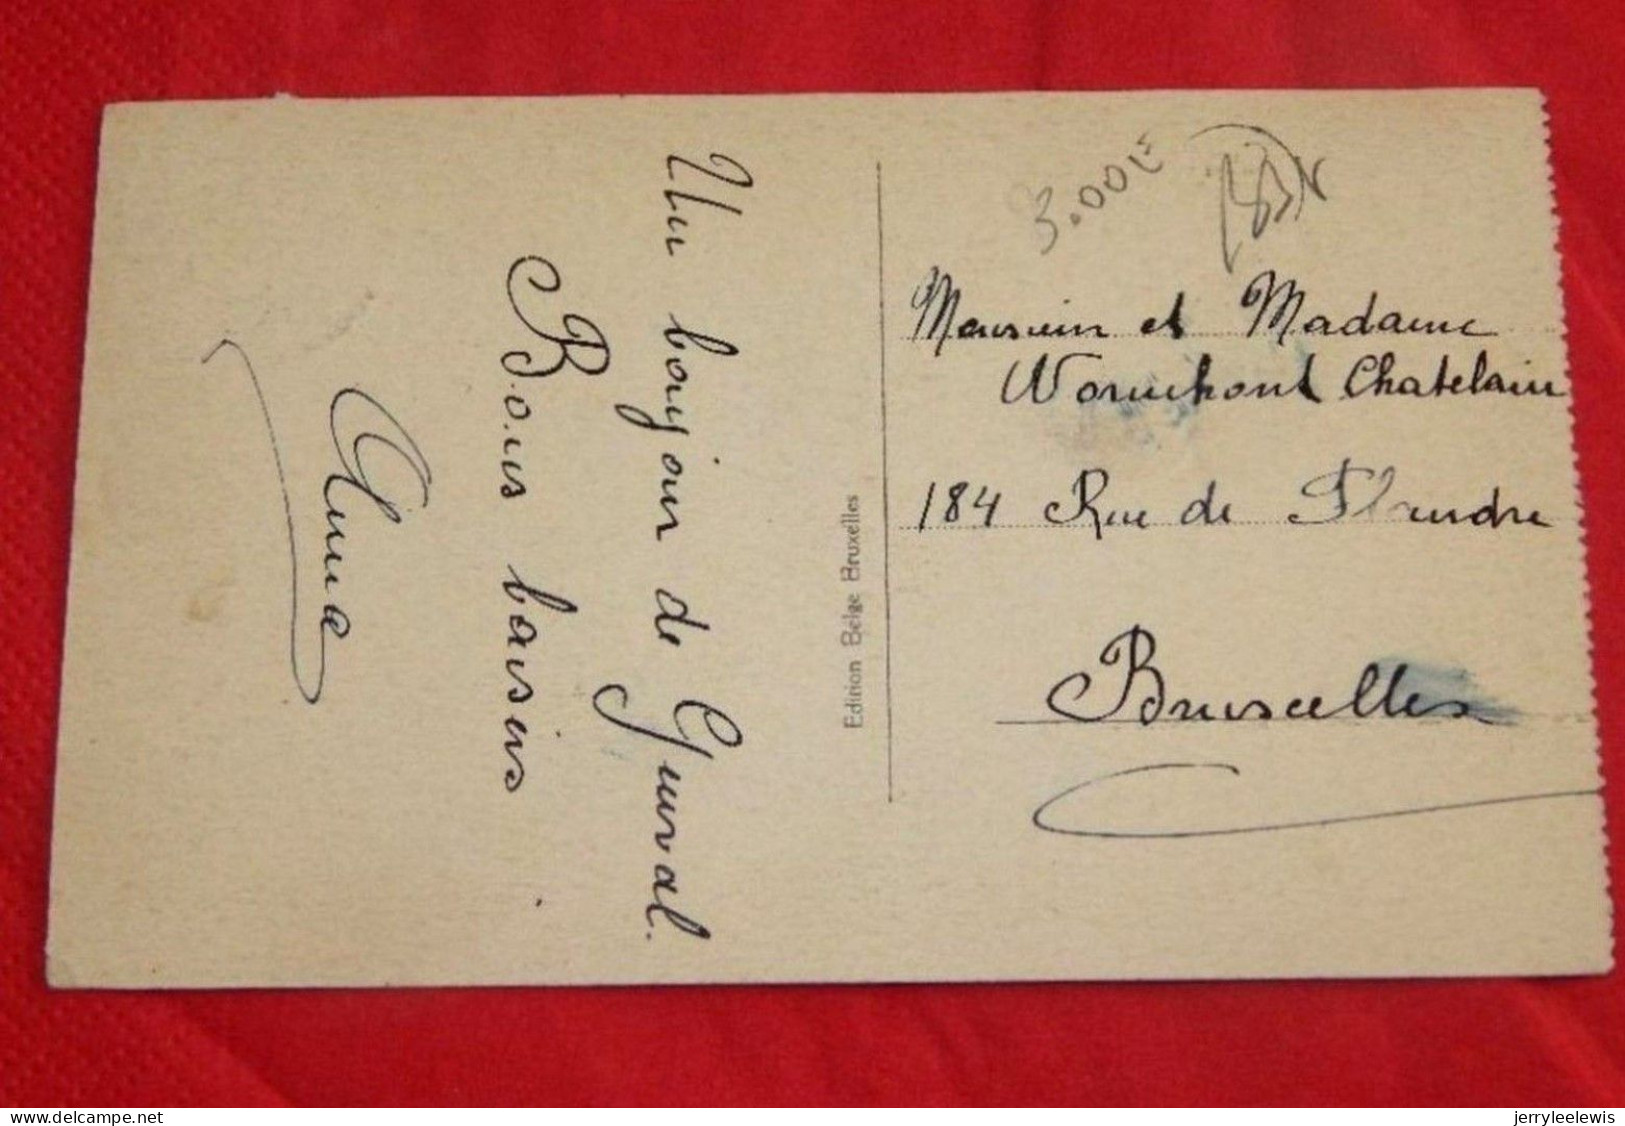 Un bonjour de Genval.
Bons baisers
Anna
Edition Belge Bruxelles
3.00E
Monsieur et Madame
Chatelain
184 Rue de Flandre
Bruxelles
www.delcampe.net
jerryleelewis